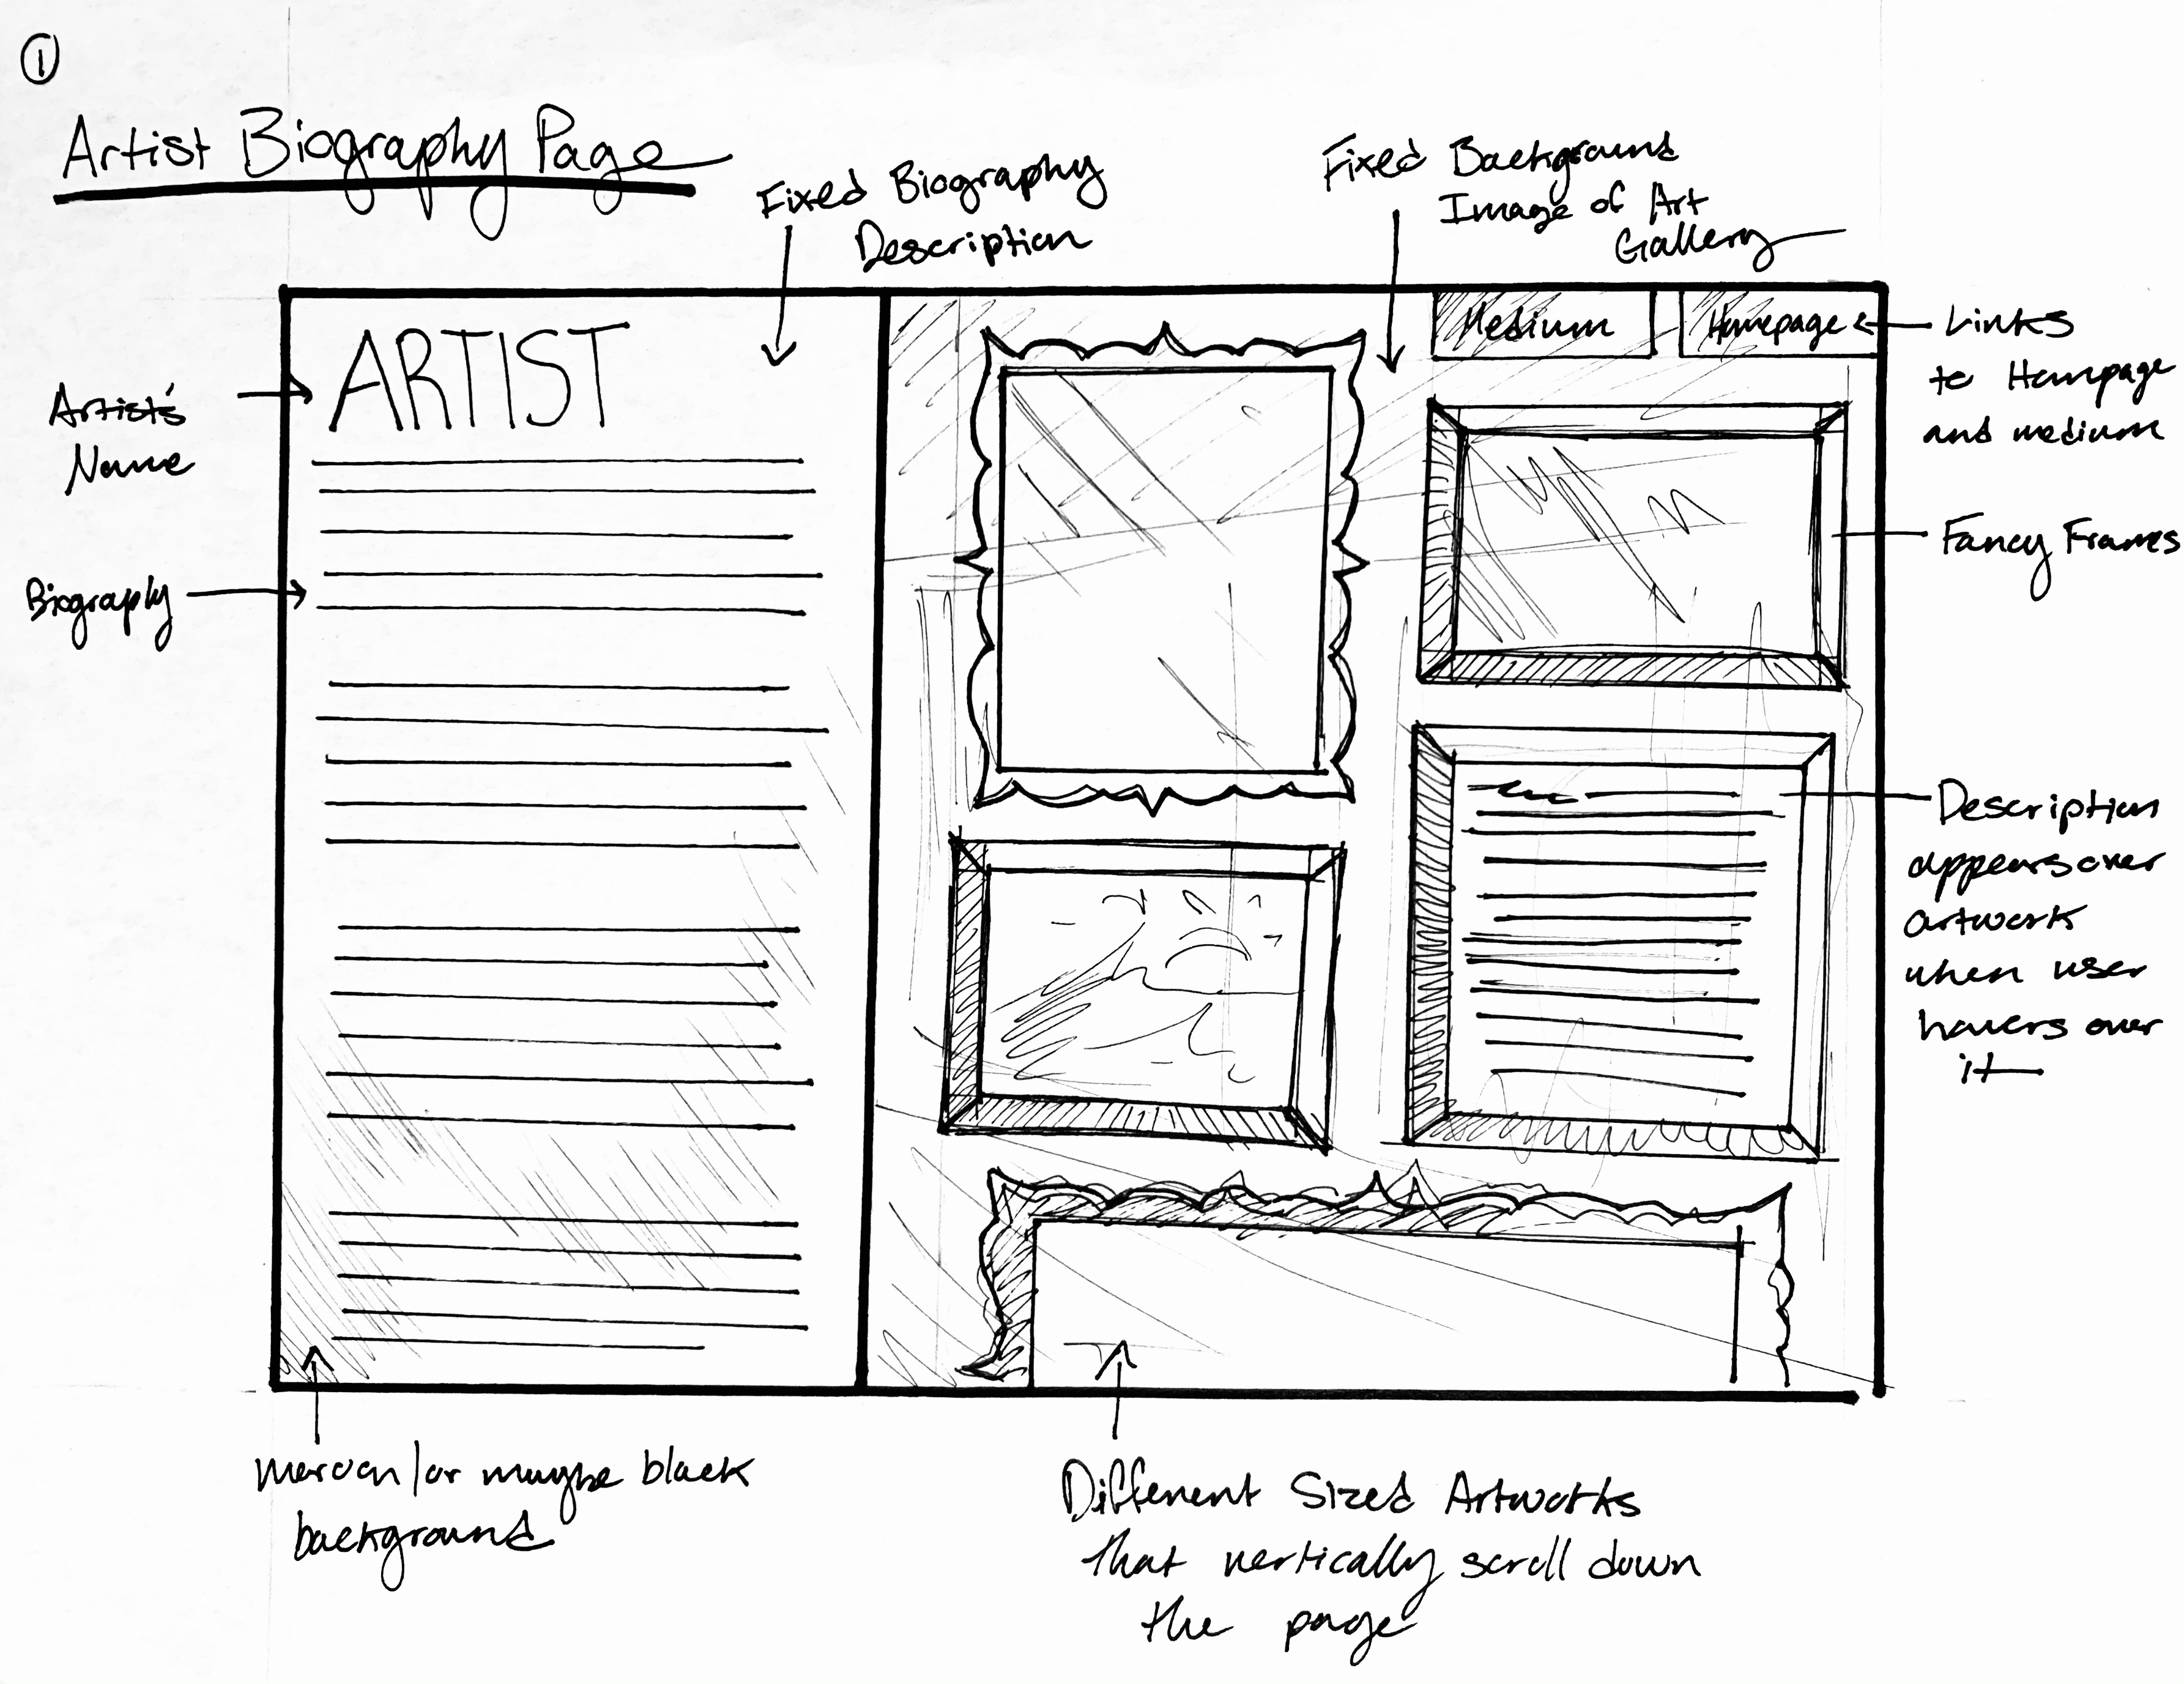 1
Artist Biography Page
Fixed Biography
Description
Fixed Background
Image of Art
Gallery
ARTIST
Medium
Homepage
Links
to Hompage
and medium
Artist's
Name
Fancy Frames
Biography
Description
appears over
artwork
when user
hovers over
it
maroon/or maybe black
background
Different Sized Artworks
that vertically scroll down
the page